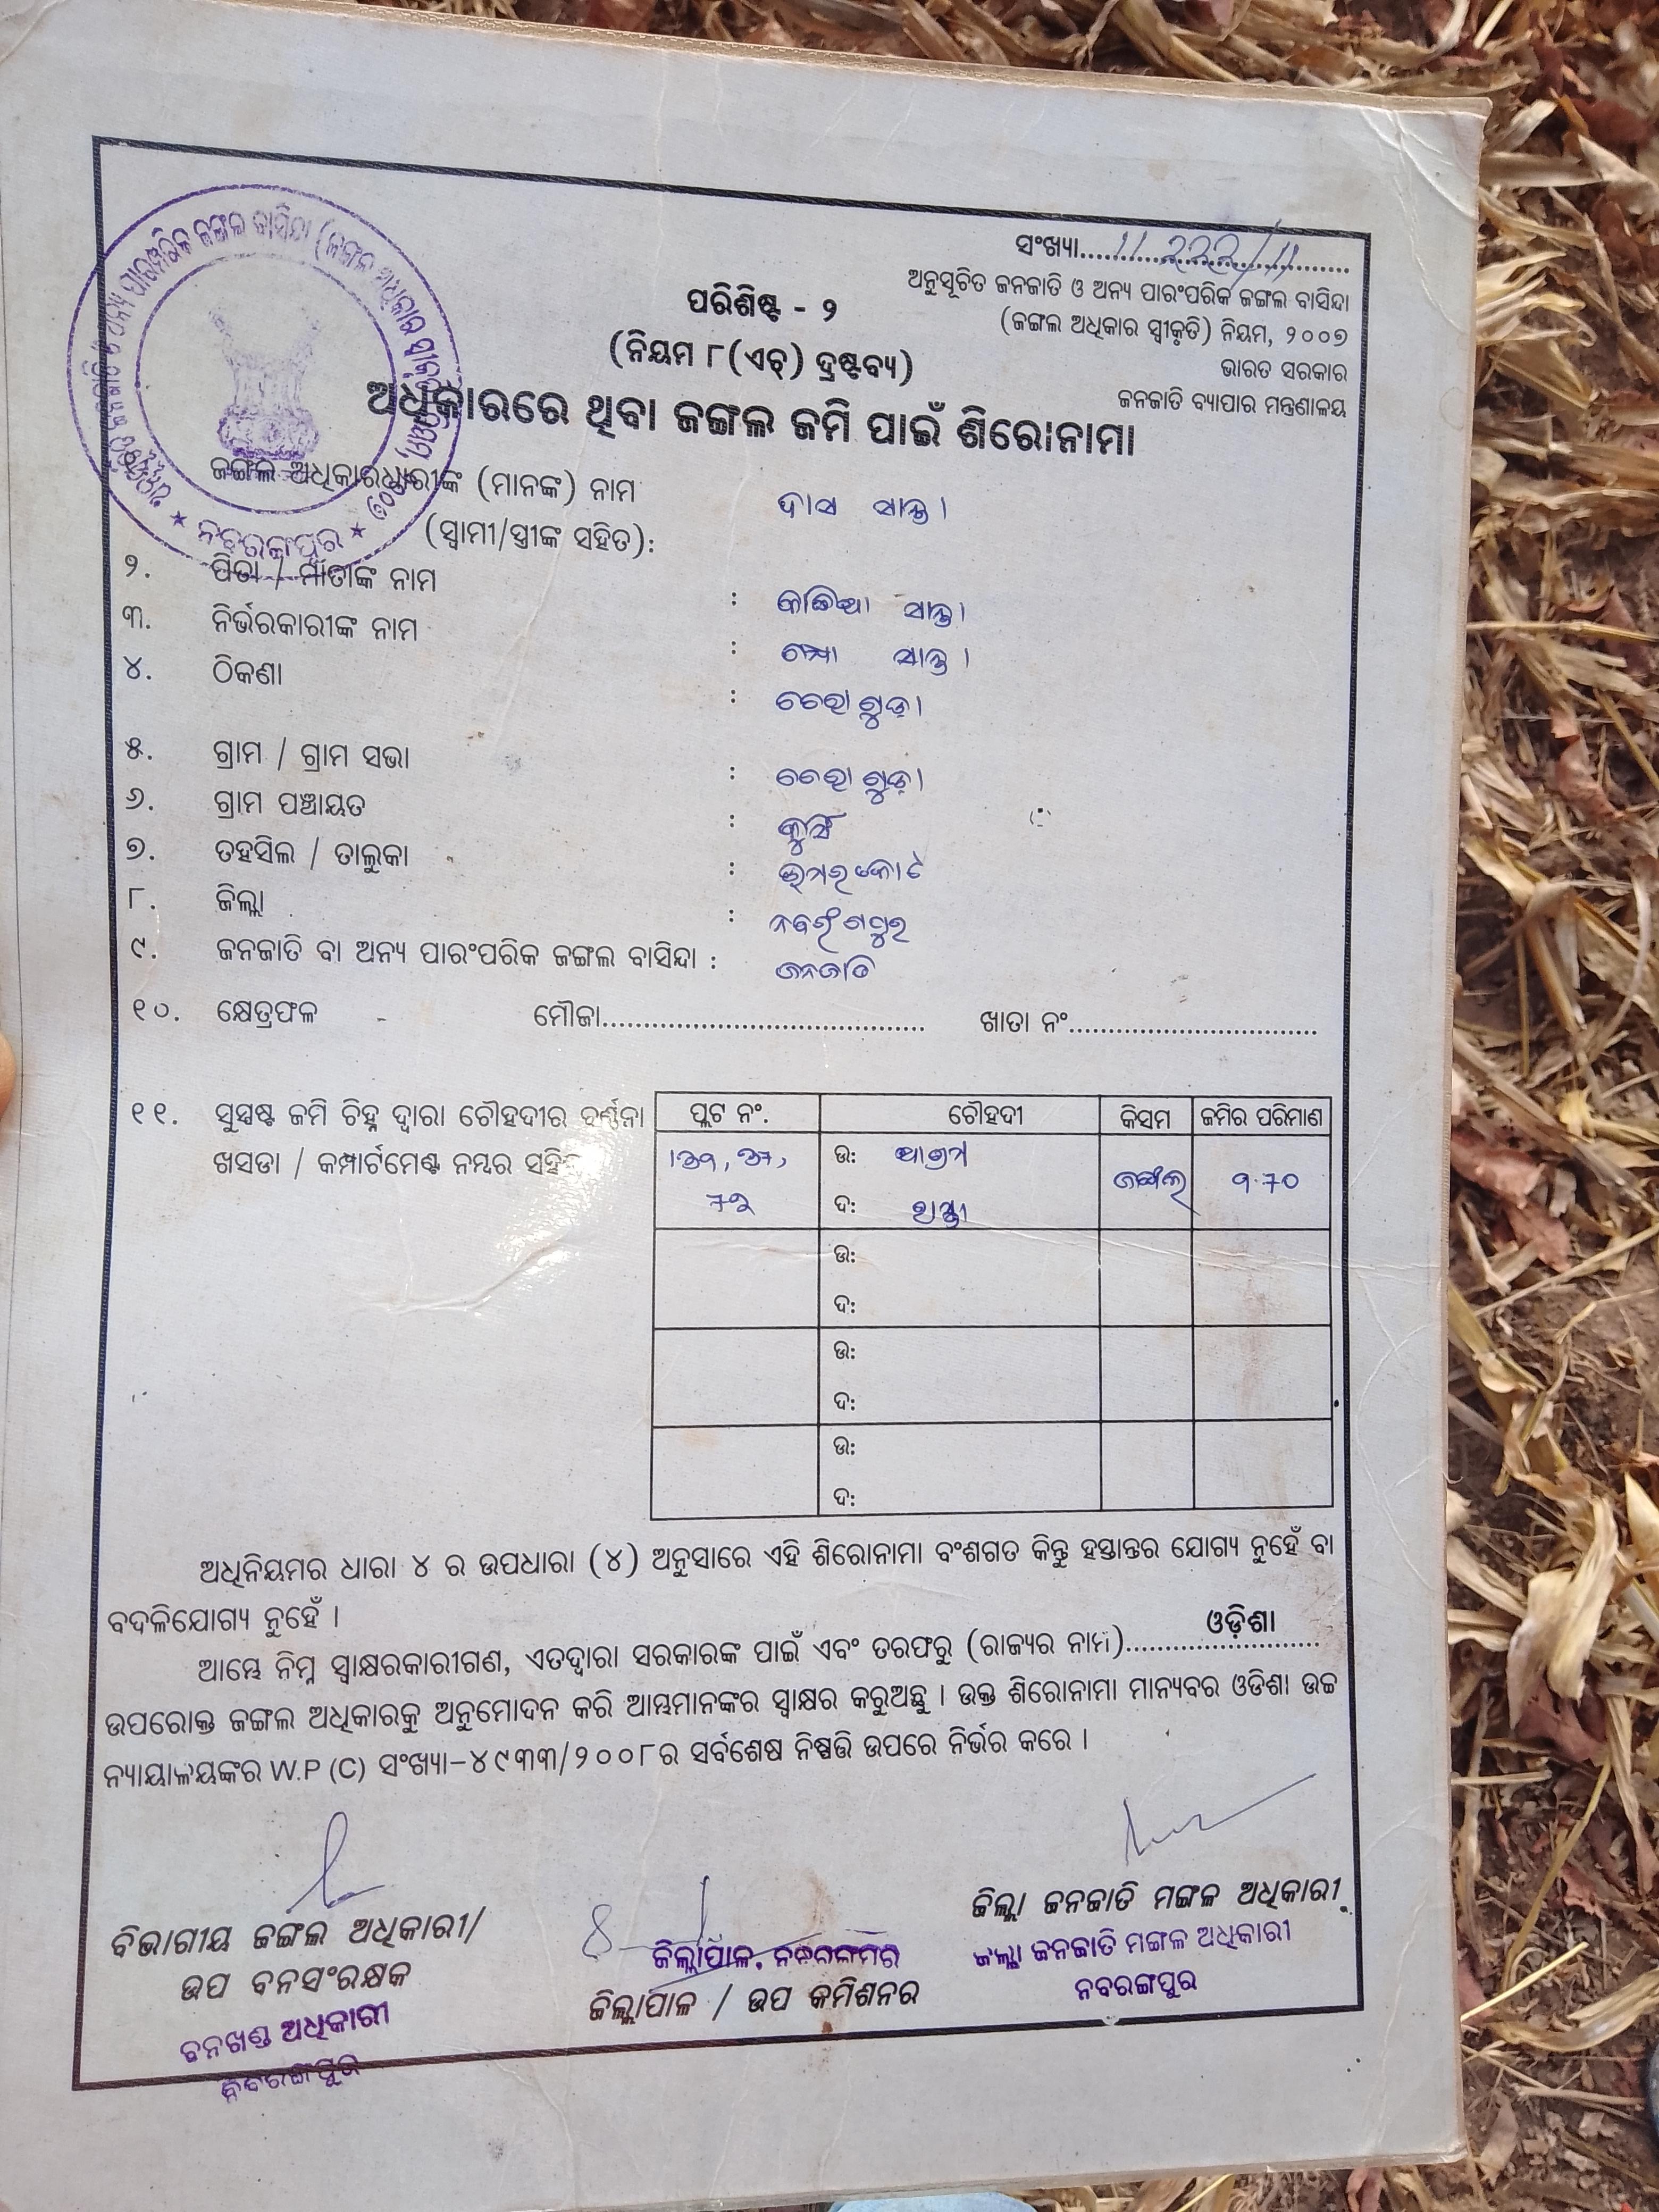 ସଂଖ୍ୟା
ଅନୁସୂଚିତ ଜନଜାତି ଓ ଅନ୍ୟ ପାରଂପରିକ ଜଙ୍ଗଲ ବାସିନ୍ଦା
(ଜଙ୍ଗଲ ଅଧିକାର ସ୍ୱୀକୃତି) ନିୟମ, ୨୦୦୭
ଭାରତ ସରକାର
ଜନଜାତି ବ୍ୟାପାର ମନ୍ତ୍ରଣାଳୟ
ପରିଶିଷ୍ଟ - ୨
(ନିୟମ ୮(ଏଚ୍) ଦ୍ରଷ୍ଟବ୍ୟ)
ଅଧିକାରରେ ଥିବା ଜଙ୍ଗଲ ଜମି ପାଇଁ ଶିରୋନାମା
ନବରଙ୍ଗପୁର
ଜଙ୍ଗଲ ଅଧିକାରଧାରୀଙ୍କ (ମାନଙ୍କ) ନାମ ଦାସ ସାନ୍ତା
(ସ୍ୱାମୀ/ସ୍ତ୍ରୀଙ୍କ ସହିତ):
୨. ପିତା / ମାତାଙ୍କ ନାମ : ସାନ୍ତା
୩. ନିର୍ଭରକାରୀଙ୍କ ନାମ : ସାନ୍ତା
୪. ଠିକଣା : ଚେରାଗୁଡ଼ା
୫. ଗ୍ରାମ / ଗ୍ରାମ ସଭା : ଚେରାଗୁଡ଼ା
୬. ଗ୍ରାମ ପଞ୍ଚାୟତ : କୁର୍ସି
୭. ତହସିଲ / ତାଲୁକା : ଉମରକୋଟ
୮. ଜିଲ୍ଲା : ନବରଂଗପୁର
୯. ଜନଜାତି ବା ଅନ୍ୟ ପାରଂପରିକ ଜଙ୍ଗଲ ବାସିନ୍ଦା : ଜନଜାତି
୧୦. କ୍ଷେତ୍ରଫଳ - ମୌଜା........................................ ଖାତା ନଂ................................
୧୧. ସୁସ୍ପଷ୍ଟ ଜମି ଚିହ୍ନ ଦ୍ୱାରା ଚୌହଦୀର ବର୍ଣ୍ଣନା
ଖସଡା / କମ୍ପାର୍ଟମେଣ୍ଟ ନମ୍ବର ସହିତ
ପ୍ଲଟ ନଂ. ଚୌହଦୀ କିସମ ଜମିର ପରିମାଣ
ଉ: ଜଙ୍ଗଲ
ଦ:
ଉ:
ଦ:
ଉ:
ଦ:
ଉ:
ଦ:
ଅଧିନିୟମର ଧାରା ୪ ର ଉପଧାରା (୪) ଅନୁସାରେ ଏହି ଶିରୋନାମା ବଂଶଗତ କିନ୍ତୁ ହସ୍ତାନ୍ତର ଯୋଗ୍ୟ ନୁହେଁ ବା
ବଦଳିଯୋଗ୍ୟ ନୁହେଁ ।
ଆମ୍ଭେ ନିମ୍ନ ସ୍ୱାକ୍ଷରକାରୀଗଣ, ଏତଦ୍ୱାରା ସରକାରଙ୍କ ପାଇଁ ଏବଂ ତରଫରୁ (ରାଜ୍ୟର ନାମ) ଓଡ଼ିଶା
ଉପରୋକ୍ତ ଜଙ୍ଗଲ ଅଧିକାରକୁ ଅନୁମୋଦନ କରି ଆମ୍ଭମାନଙ୍କର ସ୍ୱାକ୍ଷର କରୁଅଛୁ । ଉକ୍ତ ଶିରୋନାମା ମାନ୍ୟବର ଓଡିଶା ଉଚ୍ଚ
ନ୍ୟାୟାଳୟଙ୍କର W.P (C) ସଂଖ୍ୟା-୪୯୩୩/୨୦୦୮ର ସର୍ବଶେଷ ନିଷ୍ପତ୍ତି ଉପରେ ନିର୍ଭର କରେ ।
ବିଭାଗୀୟ ଜଙ୍ଗଲ ଅଧିକାରୀ/
ଉପ ବନସଂରକ୍ଷକ
ବନଖଣ୍ଡ ଅଧିକାରୀ
ନବରଙ୍ଗପୁର
ଜିଲ୍ଲାପାଳ, ନବରଙ୍ଗପୁର
ଜିଲ୍ଲାପାଳ / ଉପ କମିଶନର
ଜିଲ୍ଲା ଜନଜାତି ମଙ୍ଗଳ ଅଧିକାରୀ
ଜିଲ୍ଲା ଜନଜାତି ମଙ୍ଗଳ ଅଧିକାରୀ
ନବରଙ୍ଗପୁର